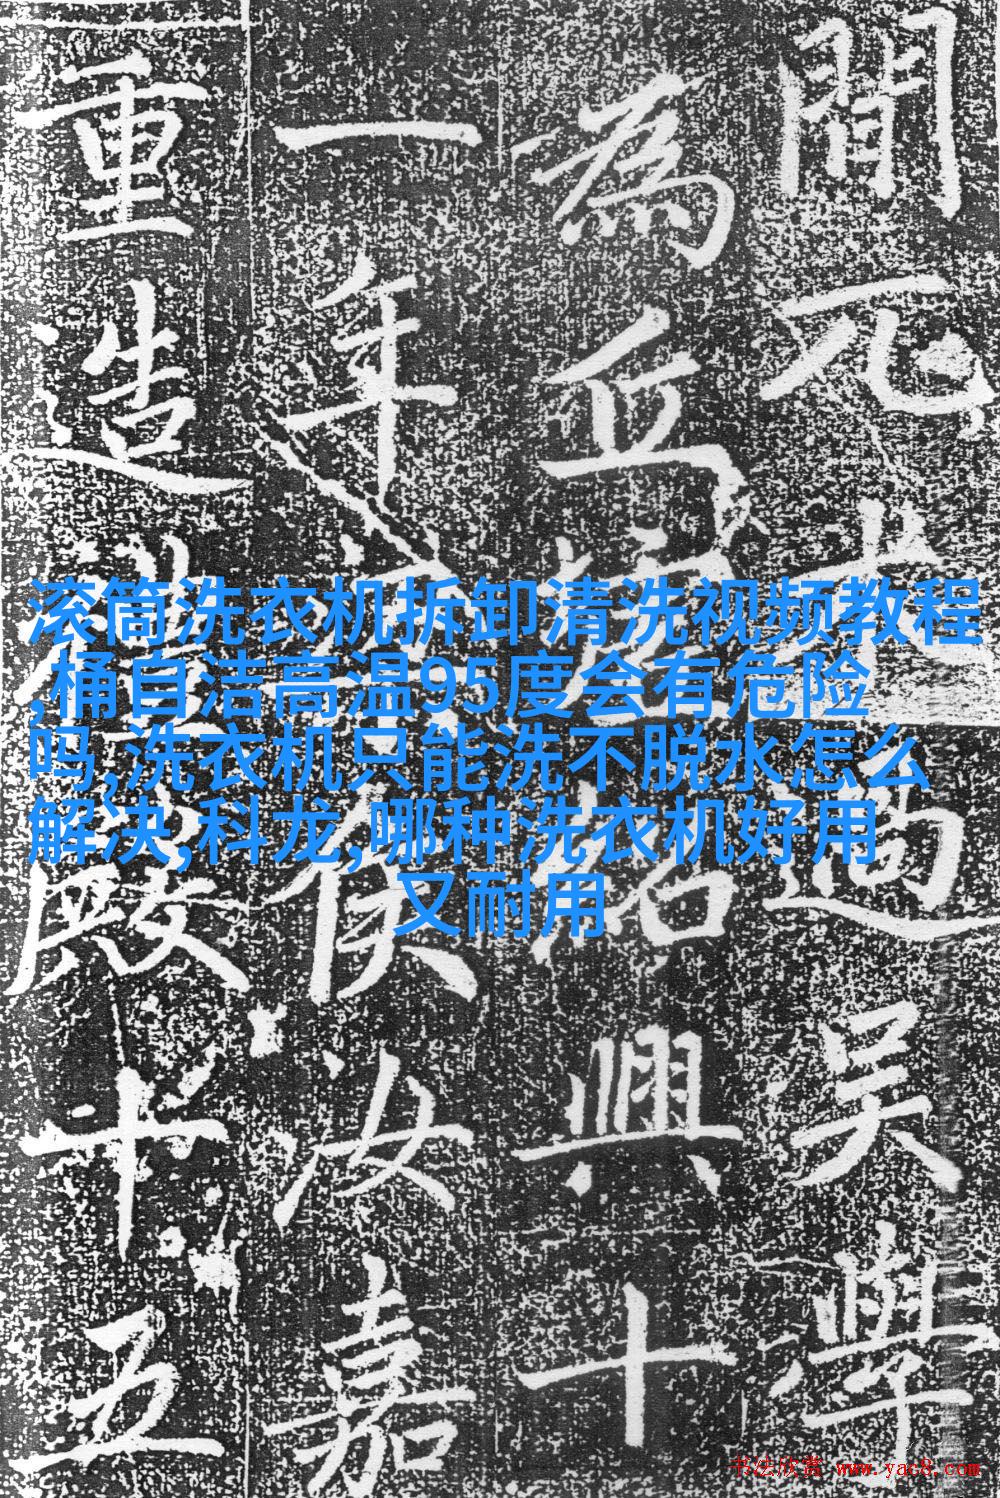 間兀過吳學
為丘墟紹興十
一年侯汝嘉
重造殿十五
滚筒洗衣机拆卸清洗视频教程
,桶自洁高温95度会有危险
吗,洗衣机只能洗不脱水怎么
解决,科龙,哪种洗衣机好用
又耐用
书法欣赏 www.yac8.com